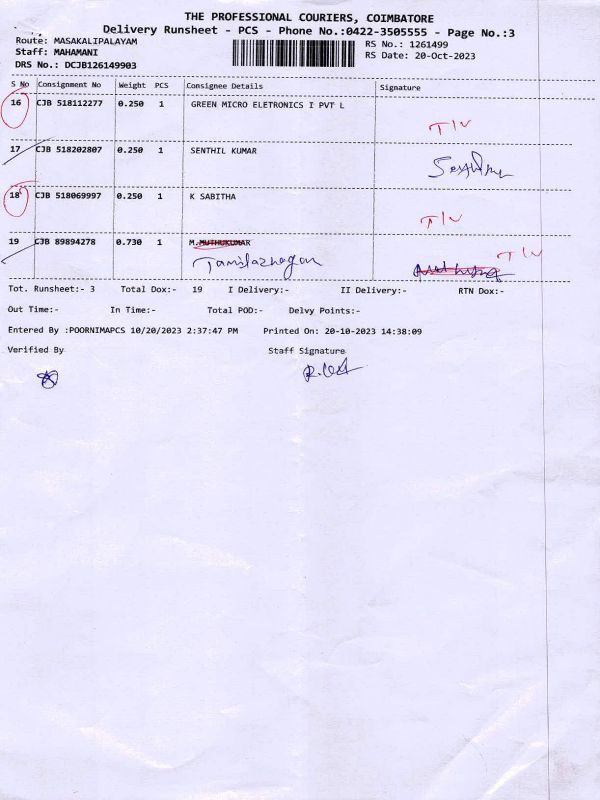 THE PROFESSIONAL COURIERS, COIMBATORE
Delivery Runsheet - PCS - Phone No.:0422-3505555 - Page No.:3
Route: MASAKALIPALAYAM
RS No.: 1261499
Staff: MAHAMANI
RS Date: 20-Oct-2023
DRS No.: DCJB126149903
S No Consignment No Weight PCS Consignee Details Signature
16 CJB 518112277 0.250 1 GREEN MICRO ELETRONICS I PVT L
T/V
17 CJB 518202807 0.250 1 SENTHIL KUMAR
18 CJB 518069997 0.250 1 K SABITHA
T/V
19 CJB 89894278 0.730 1 M.MUTHUKUMAR
T/V
Tamilaznagan
Tot. Runsheet:- 3 Total Dox:- 19 I Delivery:- II Delivery:- RTN Dox:-
Out Time:- In Time:- Total POD:- Delvy Points:-
Entered By :POORNIMAPCS 10/20/2023 2:37:47 PM Printed On: 20-10-2023 14:38:09
Verified By Staff Signature